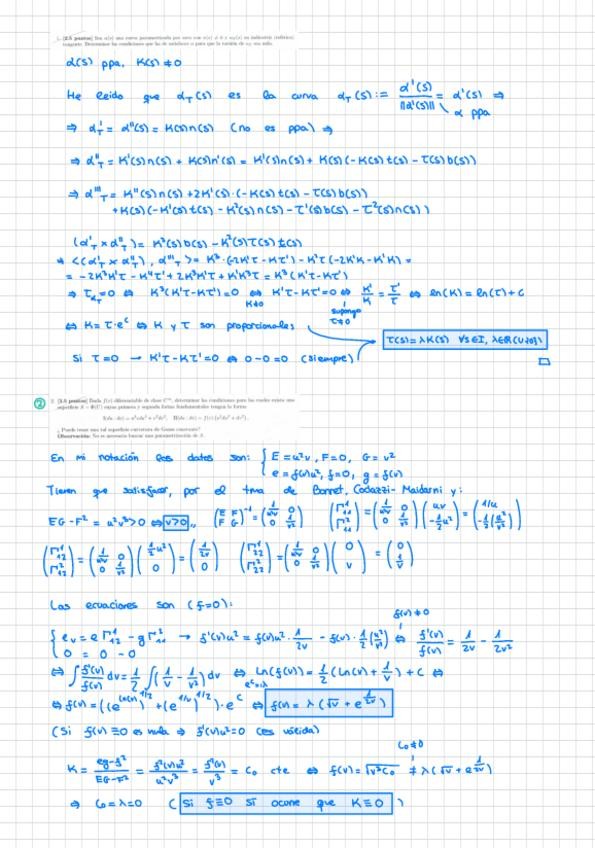 1. [2.5 puntos] Sea α(s) una curva parametrizada por arco con κ(s) ≠ 0 y α_T(s) su indicatriz (esférica)
tangente. Determinar las condiciones que ha de satisfacer α para que la torsión de α_T sea nula.
α(s) ppa, K(s) ≠ 0
He leido que α_T(s) es la curva α_T(s) := α'(s)/||α'(s)|| = α'(s) ⇒
α ppa
⇒ α'_T = α''(s) = K(s)n(s) (no es ppa) ⇒
⇒ α''_T = K'(s)n(s) + K(s)n'(s) = K'(s)n(s) + K(s)(-K(s)t(s) - τ(s)b(s))
⇒ α'''_T = K''(s)n(s) + 2K'(s)·(-K(s)t(s) - τ(s)b(s))
+ K(s)(-K'(s)t(s) - K²(s)n(s) - τ'(s)b(s) - τ²(s)n(s))
(α'_T × α''_T) = K³(s)b(s) - K²(s)τ(s)t(s)
⇒ <(α'_T × α''_T), α'''_T> = K³·(-2K'τ - Kτ') - K²τ(-2K'K - K'K) =
= -2K³K'τ - K⁴τ' + 2K³K'τ + K'K³τ = K³(K'τ - Kτ')
⇒ τ_{α_T} = 0 ⇔ K³(K'τ - Kτ') = 0 ⇔ K'τ - Kτ' = 0 ⇔ K'/K = τ'/τ ⇔ ln(K) = ln(τ) + C
K≠0 supongo τ≠0
⇔ K = τ·e^c ⇔ K y τ son proporcionales
τ(s) = λK(s) ∀s∈I, λ∈ℝ(∪{0})
Si τ = 0 → K'τ - Kτ' = 0 ⇔ 0 - 0 = 0 (siempre)
②
2. [2.5 puntos] Dada f(v) diferenciable de clase C^∞, determinar las condiciones para las cuales exista una
superficie S = Φ(U) cuyas primera y segunda formas fundamentales tengan la forma
I(du : dv) = u²vdu² + v²dv², II(du : dv) = f(v)(u²du² + dv²).
¿Puede tener una tal superficie curvatura de Gauss constante?
Observación: No es necesario buscar una parametrización de S.
En mi notación los datos son: { E = u²v, F = 0, G = v²
e = f(v)u², f = 0, g = f(v)
Tienen que satisfacer, por el tma de Bonnet, Codazzi-Maidarni y:
EG - F² = u²v³ > 0 ⇔ v>0 ,, (E F / F G)⁻¹ = (1/u²v 0 / 0 1/v²) (Γ¹₁₁ / Γ²₁₁) = (1/u²v 0 / 0 1/v²)(uv / -½u²) = (1/u / -½(u²/v²))
(Γ¹₁₂ / Γ²₁₂) = (1/u²v 0 / 0 1/v²)(½u² / 0) = (1/2v / 0) (Γ¹₂₂ / Γ²₂₂) = (1/u²v 0 / 0 1/v²)(0 / v) = (0 / 1/v)
Las ecuaciones son (f=0):
f(v) ≠ 0
{ e_v = e Γ¹₁₂ - g Γ²₁₁ → f'(v)u² = f(v)u²·1/2v - f(v)·½(u²/v²) ⇔ f'(v)/f(v) = 1/2v - 1/2v²
0 = 0 - 0
⇔ ∫ f'(v)/f(v) dv = ½ ∫(1/v - 1/v²)dv ⇔ ln(f(v)) = ½(ln(v) + 1/v) + C ⇔
e^c = λ
⇔ f(v) = ((e^{ln(v)})^{1/2} + (e^{1/v})^{1/2})·e^c ⇔ f(v) = λ(√v + e^{1/2v})
(Si f(v) ≡ 0 es nula ⇒ f'(v)u² = 0 (es válida)
K = (eg-f²)/(EG-F²) = f²(v)u²/u²v³ = f²(v)/v³ = C₀ cte ⇔ f(v) = √(v³C₀) ≠ λ(√v + e^{1/2v})
C₀≠0
⇒ C₀ = λ = 0 (Si f≡0 sí ocurre que K≡0)